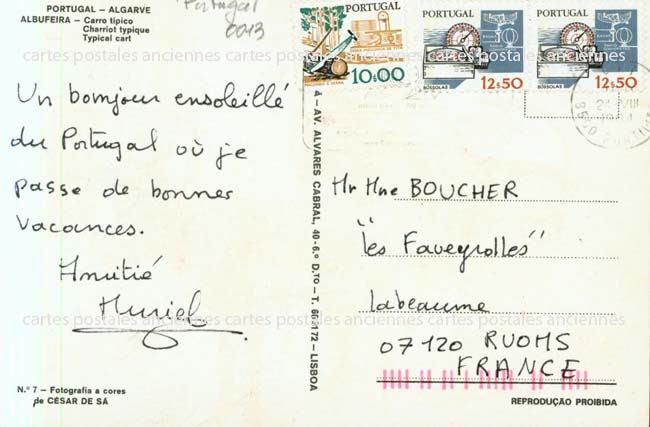 PORTUGAL – ALGARVE
ALBUFEIRA – Carro típico
Charriot typique
Typical cart
Portugal
0013
Un bomjour ensoleillé
du Portugal où je
passe de bonnes
vacances.
Amitié
Muriel
N.º 7 – Fotografia a cores
de CÉSAR DE SÁ
4 – AV. ALVARES CABRAL, 40-6.º D.TO – T. 662172 – LISBOA
10$00
PORTUGAL
BÚSSOLAS
12$50
PORTUGAL
BÚSSOLAS
12$50
Mr Mme BOUCHER
"les Faveyrolles"
Labeaume
07120 RUOMS
FRANCE
REPRODUÇÃO PROIBIDA
cartes postales anciennes
cartes postales anciennes
cartes postales anciennes
cartes postales anciennes